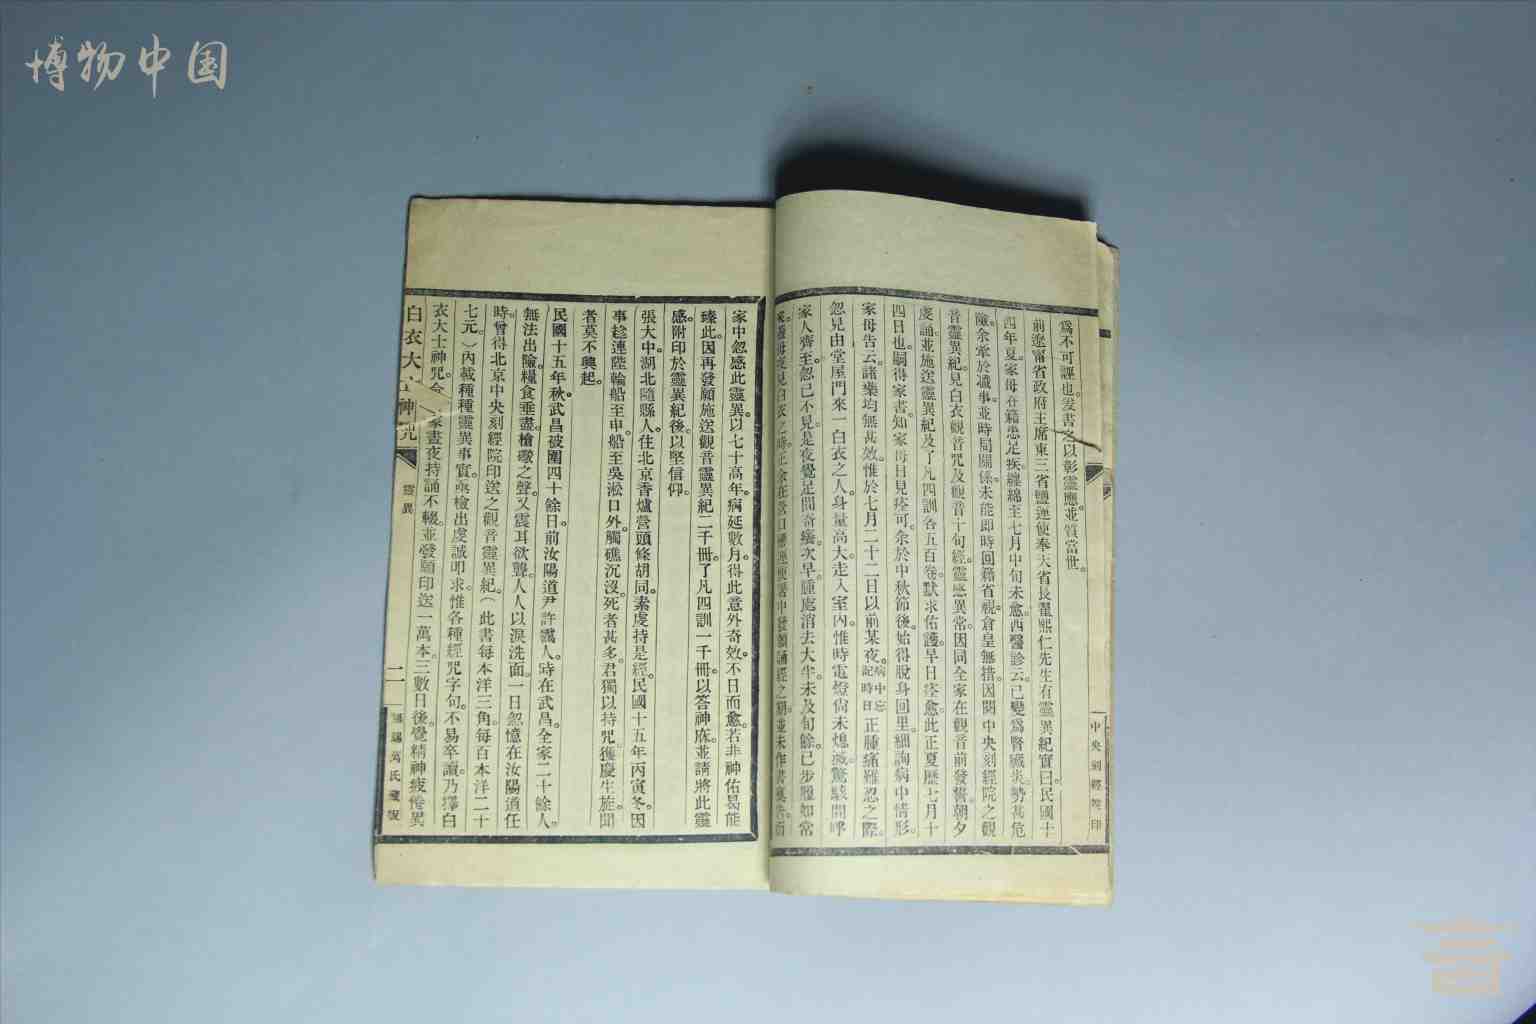 博物中国
中央刻經院印
爲不可誣也爰書之以彰靈應並質當世
前遼甯省政府主席東三省鹽運使奉天省長翟熙仁先生有靈異紀實曰民國十
四年夏家母在籍患足疾纏綿至七月中旬未愈西醫診云已變爲腎臟炎勢甚危
險余牽於瀸事並時局關係未能即時回籍省視倉皇無措因閱中央刻經院之觀
音靈異紀見白衣觀音咒及觀音十句經靈感異常因同全家在觀音前發誓朝夕
虔誦並施送靈異紀及了凡四訓各五百卷默求佑護早日痊愈此正夏歷七月十
四日也嗣得家書知家母日見痊可余於中秋節後始得脫身回里細詢病中情形
家母告云諸藥均無甚效惟於七月二十二日以前某夜病中忘記時日正腫痛難忍之際
忽見由堂屋門來一白衣之人身量高大走入室內惟時電燈尙未熄滅驚駭間呼
家人齊至忽已不見是夜覺足間奇癢次早腫處消去大半未及旬餘已步履如常
家中忽感此靈異以七十高年病延數月得此意外奇效不日而愈若非神佑曷能
臻此因再發願施送觀音靈異紀二千冊了凡四訓一千冊以答神庥並請將此靈
感附印於靈異紀後以堅信仰
張大中湖北隨縣人住北京香爐營頭條胡同素虔持是經民國十五年丙寅冬因
事趁連陞輪船至申船至吳淞口外觸礁沉沒死者甚多君獨以持咒獲慶生旋聞
者莫不興起
民國十五年秋武昌破圍四十餘日前汝陽道尹許靄人時在武昌全家二十餘人
無法出險糧食垂盡槍礮之聲又震耳欲聾人人以淚洗面一日忽憶在汝陽道任
時曾得北京中央刻經院印送之觀音靈異紀（此書每本洋三角每百本洋二十
七元）內載種種靈異事實亟檢出虔誠叩求惟各種經咒字句不易卒讀乃擇白
衣大士神咒 家晝夜持誦不輟並發願印送一萬本三數日後覺精神疲倦異
白衣大 神咒 靈異 二 萬氏